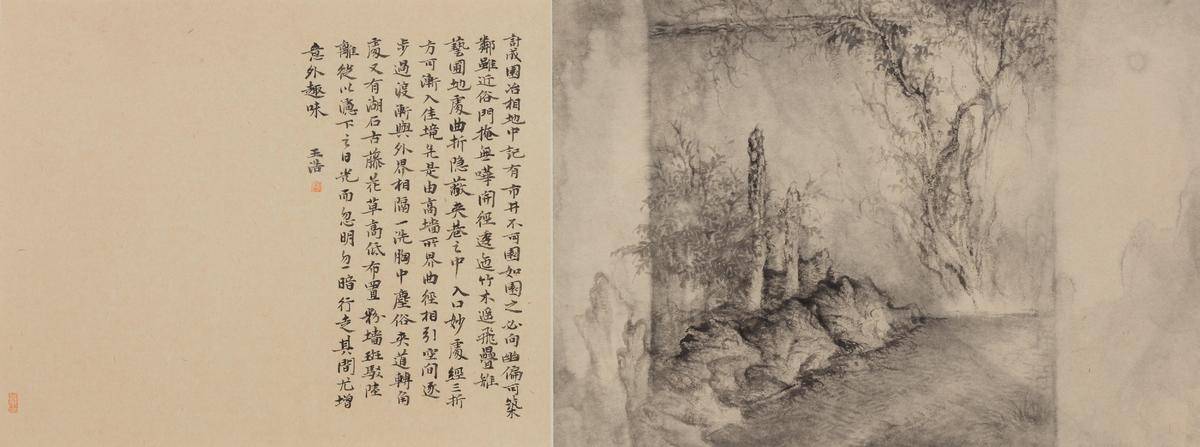 計成園冶相地中記有市井不可園如園之必向幽偏可築
鄰雖近俗門掩無嘩開徑逶迤竹木遥飛疊雉
藝圃地處曲折隐蔽夾巷之中入口妙處經三折
方可漸入佳境先是由高墙所界曲徑相引空间逐
步過渡漸與外界相隔一洗胸中塵俗夾道轉角
處又有湖石古藤花草高低布置粉墙斑駁陸
離從以濾下之日光而忽明勿暗行走其間尤增
意外趣味 王浩